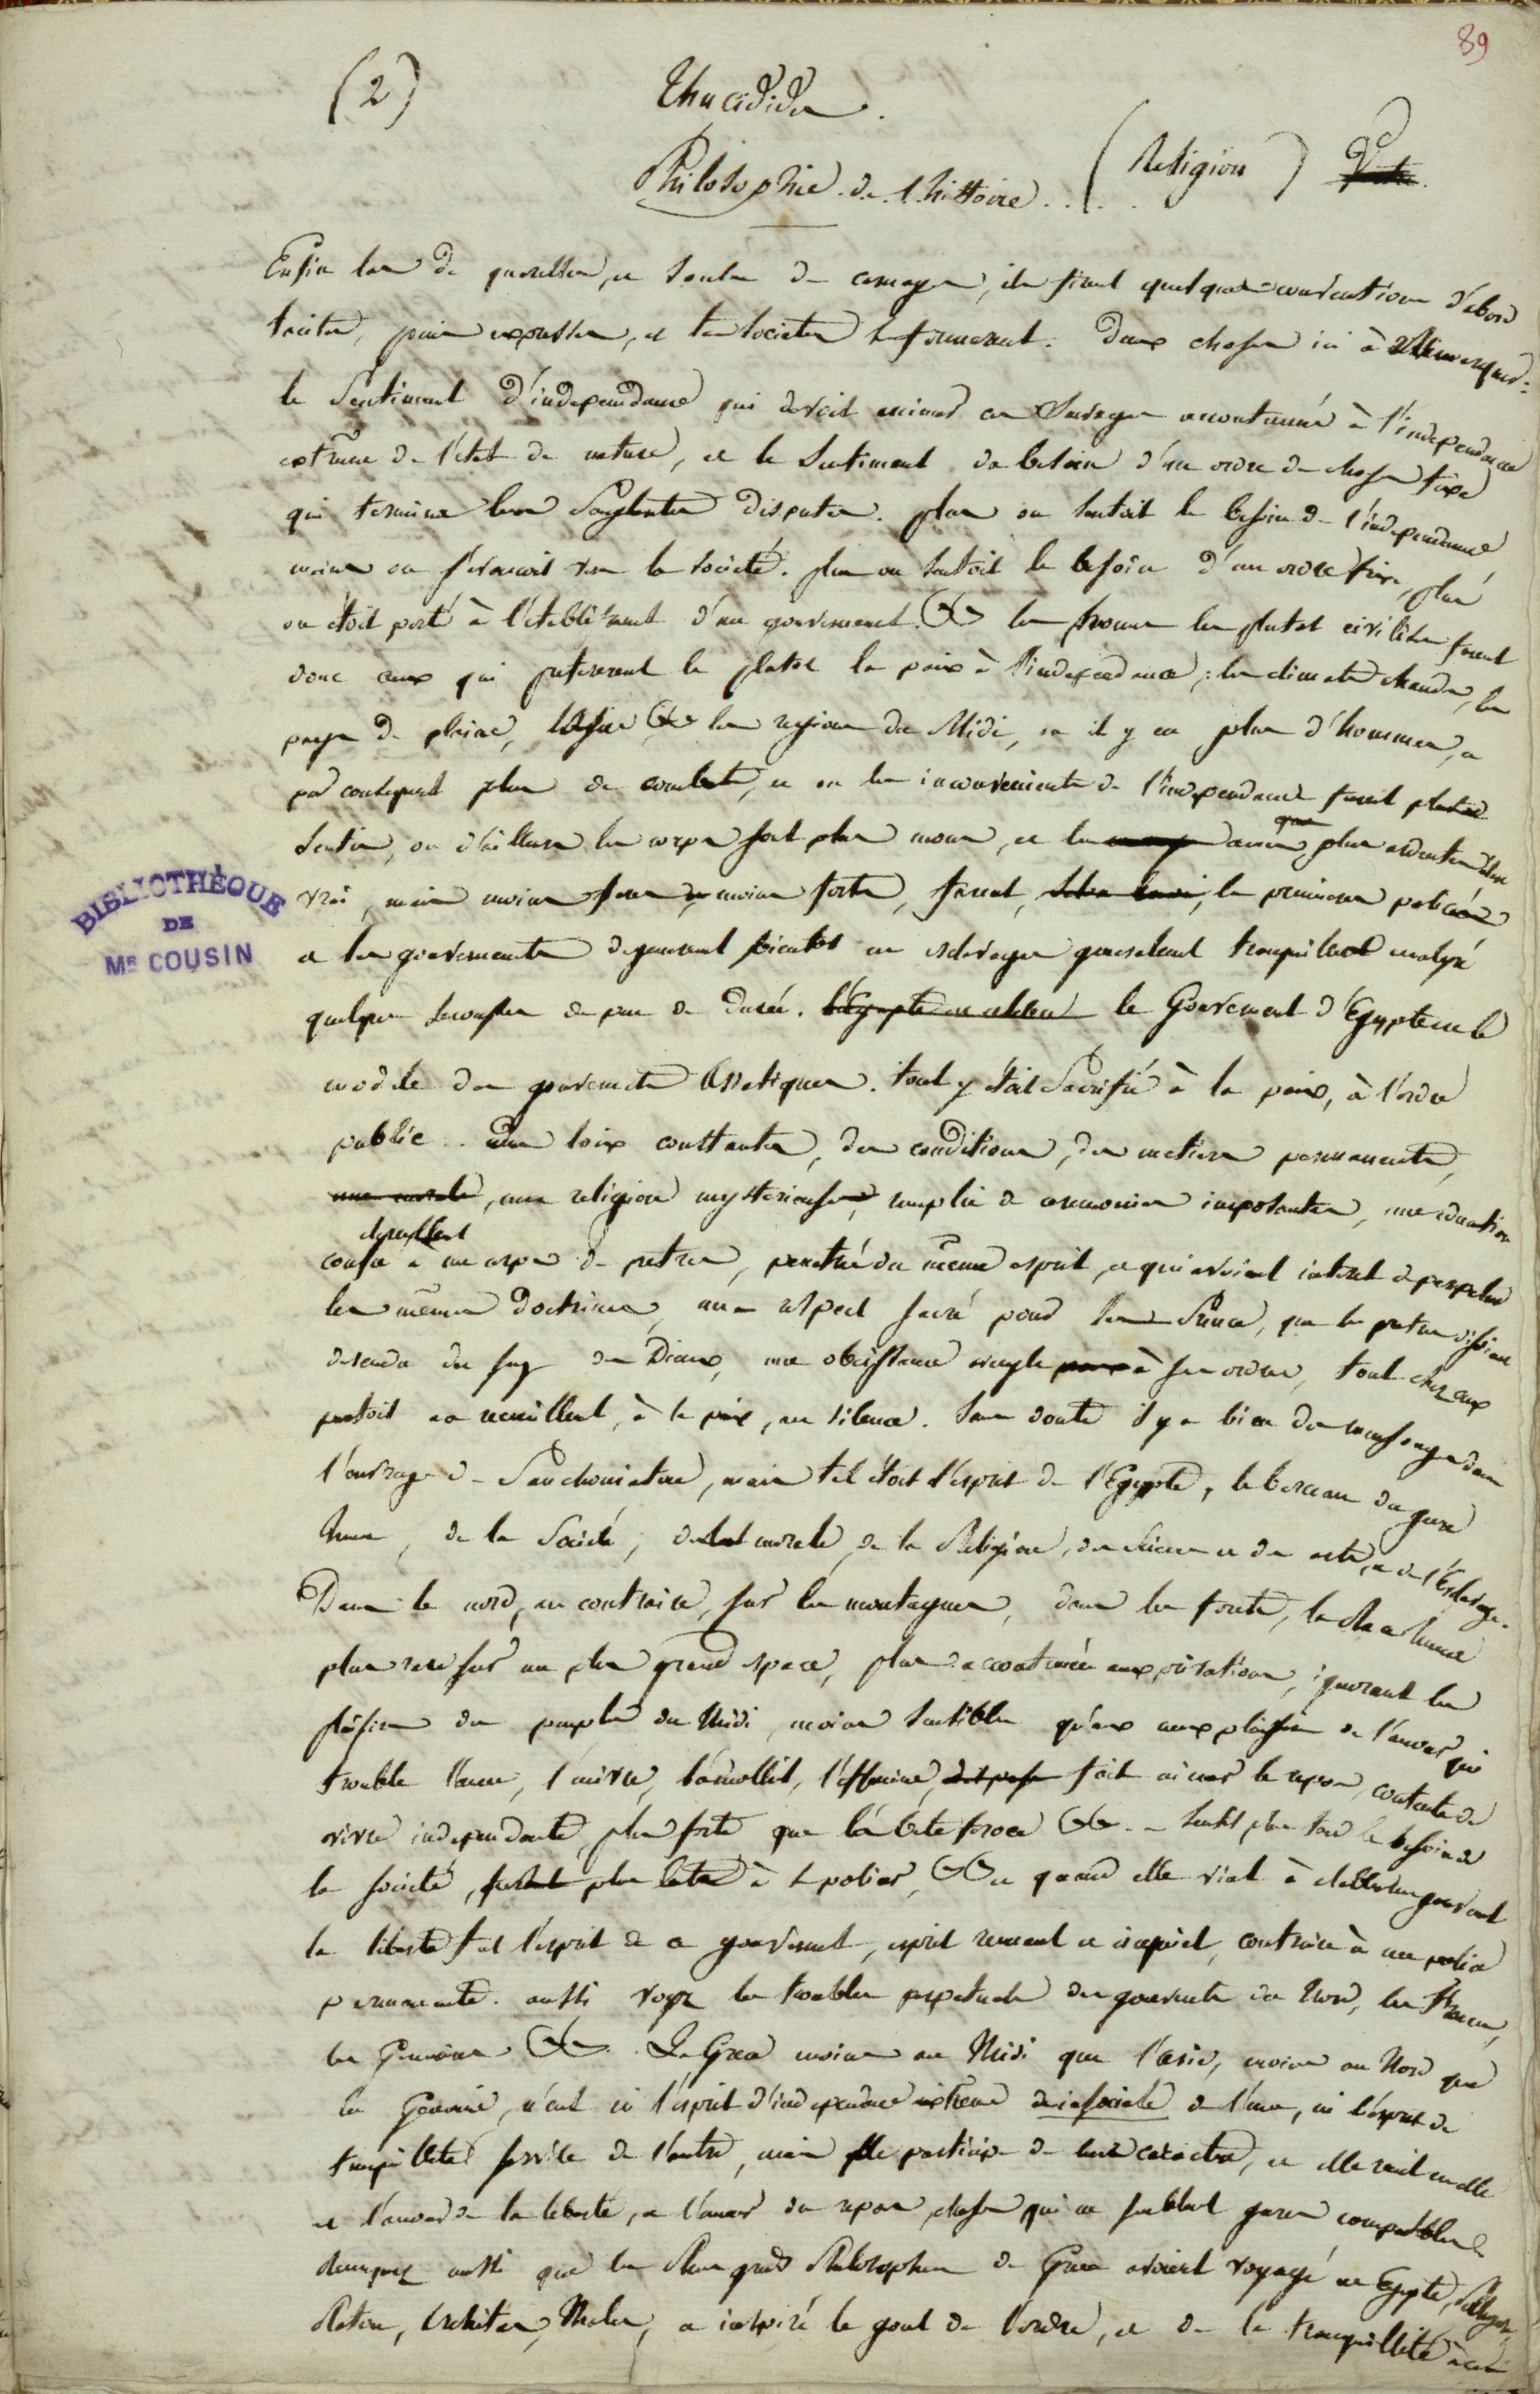 89
(2) Thucidides.
Philosophie de l'histoire . . . (Religion)
Enfin las de querelles, et souls de carnages, ils firent quelques conventions d'abord
tacites, puis expresses, et les societés se formerent. Deux choses ici à remarquer.
le sentiment d'independance qui devoit animer ces sauvages accoutumés à l'independance
extrême de l'état de nature, et le sentiment du besoin d'un ordre de choses fixe
qui termine leurs sanglantes disputes. plus on sentoit le besoin de l'independance
moins on s'avancoit vers la société. plus on sentoit le besoin d'un ordre fixe, plus
on étoit porté à l'établissement d'un gouvernement. &c les hommes les plutot civilisés furent
donc ceux qui prefererent le plutot la paix à l'independance ; les climats chauds, les
pays de plaine, l'Asie &c les regions du Midi, où il y a plus d'hommes, et
par consequent plus de combats, et où les inconvenients de l'independance furent plutot
sentis, où d'ailleurs les corps sont plus mous, et les ames plus ardentes il est
vrai, mais moins fortes, furent, les premieres policées
et les gouvernements degenerent bientot en esclavages qui resterent tranquilles malgré
quelques secousses de peu de durée. le Gouvernement d'Egypte est le
modele des gouvernements Asiatiques. tout y étoit sacrifié à la paix, à l'ordre
public. des loix constantes, des conditions, des metiers permanents,
une religion mysterieuse, remplie de ceremonies imposantes, une education
confiée à un corps de pretres, penetré du même esprit, et qui avoient interet de perpetuer
les mêmes doctrines, un respect sacré pour le Prince, que les pretres disoient
descendu du sang des Dieux, une obeissance aveugle à ses ordres, tout chez eux
portoit au recueillement, à la paix, au silence. sans doute il y a bien des mensonges dans
l'ouvrage de Sanchoniaton, mais tel étoit l'esprit de l'Egypte, le berceau du genre
humain, de la Société, de la morale, de la Religion, des sciences et des arts, et de l'Esclavage.
Dans le nord, au contraire, sur les montagnes, dans les forets, la race humaine
plus rare sur un plus grand espace, plus accoutumée aux privations, ignorant les
plaisirs des peuples du Midi, moins sensible qu'eux aux plaisirs de l'amour qui
trouble l'ame, l'enivre, l'amollit, l'effemine, fait aimer le repos, contente de
vivre independante, plus forte que la bete feroce &c. sentit plus tard le besoin de
la société, plus lente à se policer, &c et quand elle vient à etablir un gouvernement
la liberté fut l'esprit de ce gouvernement, esprit remuant et inquiet, contraire à une police
permanente. aussi voyez les troubles perpetuels des gouvernements du Nord, les Francs,
les Germains &c. La Grece moins au Midi que l'Asie, moins au Nord que
la Germanie, n'eut ni l'esprit d'independance extreme de l'une, ni l'esprit de
tranquillité servile de l'autre, mais elle participe de leurs caracteres, et elle réunit en elle
et l'amour de la liberté, et l'amour du repos, choses qui ne semblent gueres compatibles
Remarquez aussi que les plus grands Philosophes de Grece avoient voyagé en Egypte, Pythagore,
Platon, Thales, et inspiré le gout de l'ordre, et de la tranquillité
BIBLIOTHÈQUE
DE
MR COUSIN